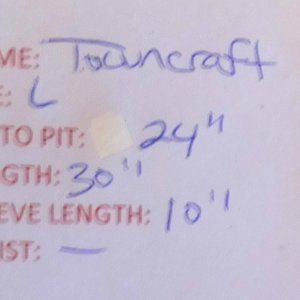 ME: Towncraft
E: L
TO PIT: 24"
GTH: 30"
EVE LENGTH: 10"
IST: —